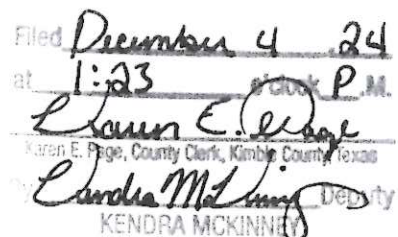 Filed December 4 , 24
at 1:23 o'clock P.M.
Karen E. Page
Karen E. Page, County Clerk, Kimble County, Texas
By Kendra McKinney Deputy
KENDRA MCKINNEY